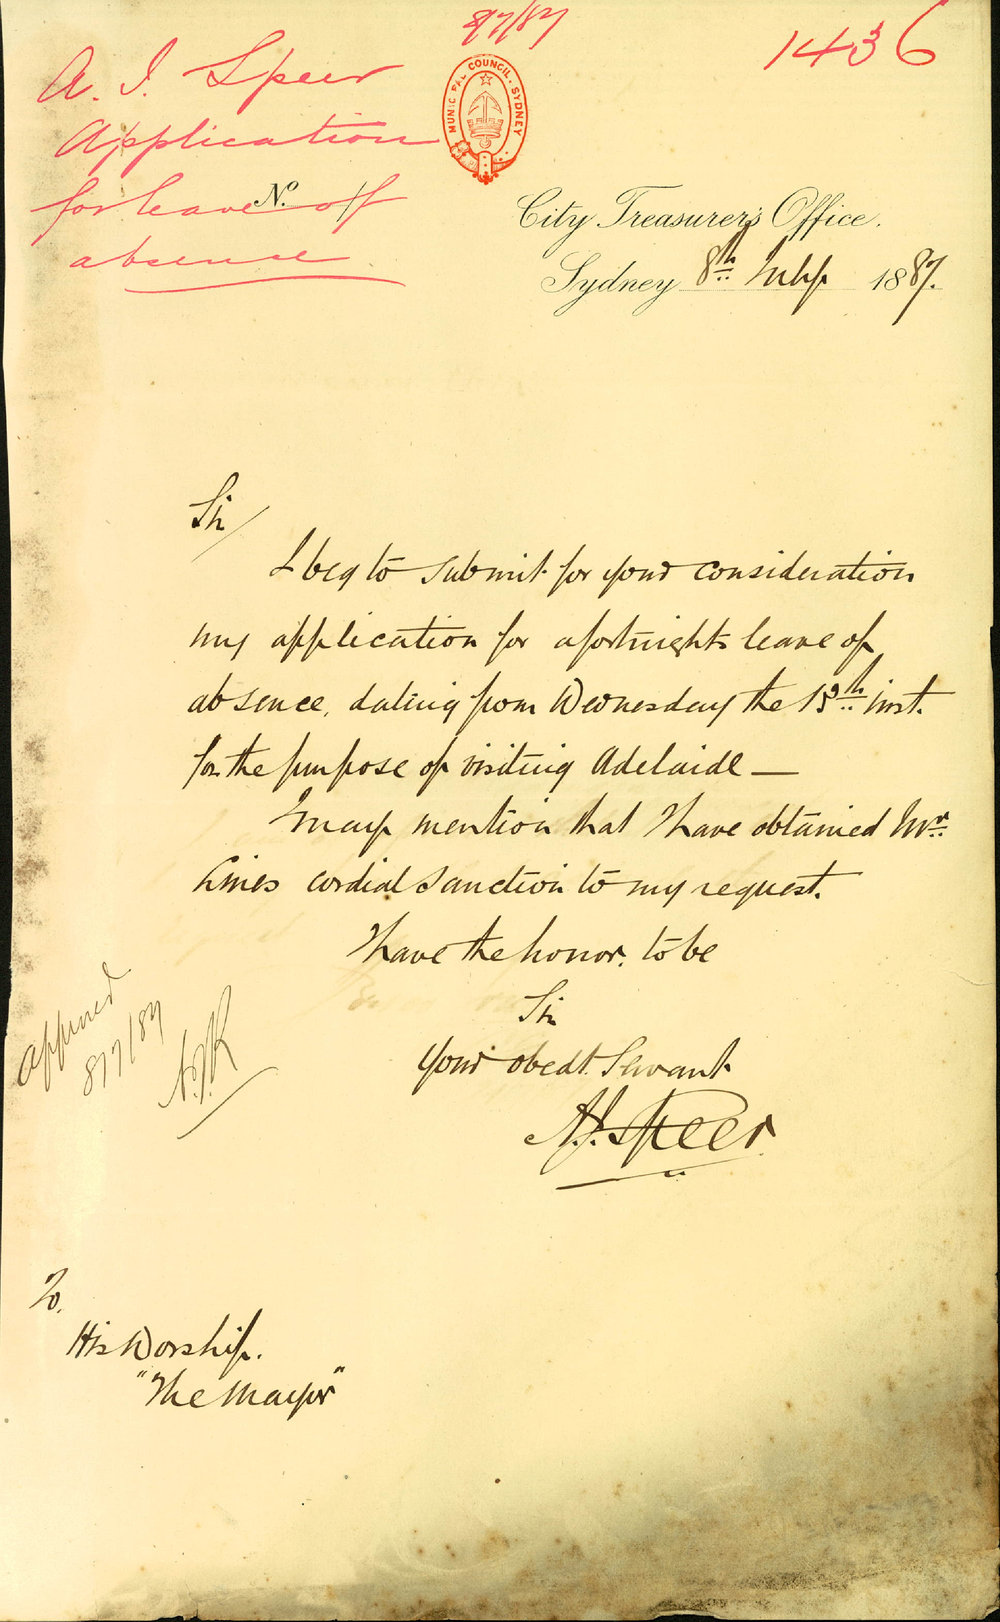 8/7/87
1436
A. J. Speer
Application
for leave of
absence
MUNICIPAL COUNCIL. SYDNEY
No.
City Treasurer's Office.
Sydney 8th July 1887.
Sir/
I beg to submit for your consideration
my application for a fortnights leave of
absence, dating from Wednesday the 13th inst.
for the purpose of visiting Adelaide —
I may mention that I have obtained Mr.
Lines cordial sanction to my request.
I have the honor. to be
Sir
Your obedt. Servant.
A.J. Speer
approved
8/7/87
A.J.R
To.
His Worship.
"The Mayor"